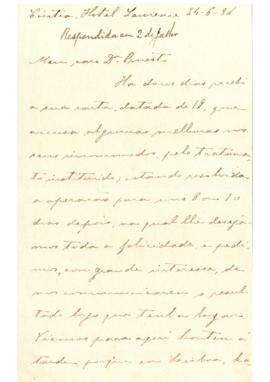 Cintra, Hotel Lawrence 24-6-96
Respondida em 2 de Julho
Meu caro Dr. Ernesto
Ha dous dias recebi
a sua carta, datada de 18, que
accusa algumas melhoras nos
seus incommodos, pelo tratamen
to instituido; estando resolvida
a operação para uns 8 ou 10
dias depois, na qual lhe deseja
mos toda a felicidade, e pedi
mos, com grande interesse, de
nos communicarem o resul
tado logo que tenha logar.
Viemos para aqui hontem á
tarde, porque em Lisboa, ha